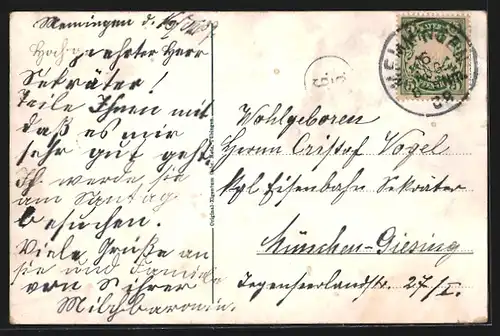 Memingen d.
Hochgeehrter Herr
Sekräter!
Teile Ihnen mit
daß es mir
sehr gut geht
Ich werde sie
am Santag
besuchen.
Viele Grüße an
sie und Familie
von Ihrer
Milchbaronin.
MEMMINGEN
Wohlgeboren
Herrn Cristof Vogel
kgl Eisenbahn Sekräter
München-Giesing
Tegernseerlandstr. 27/I.